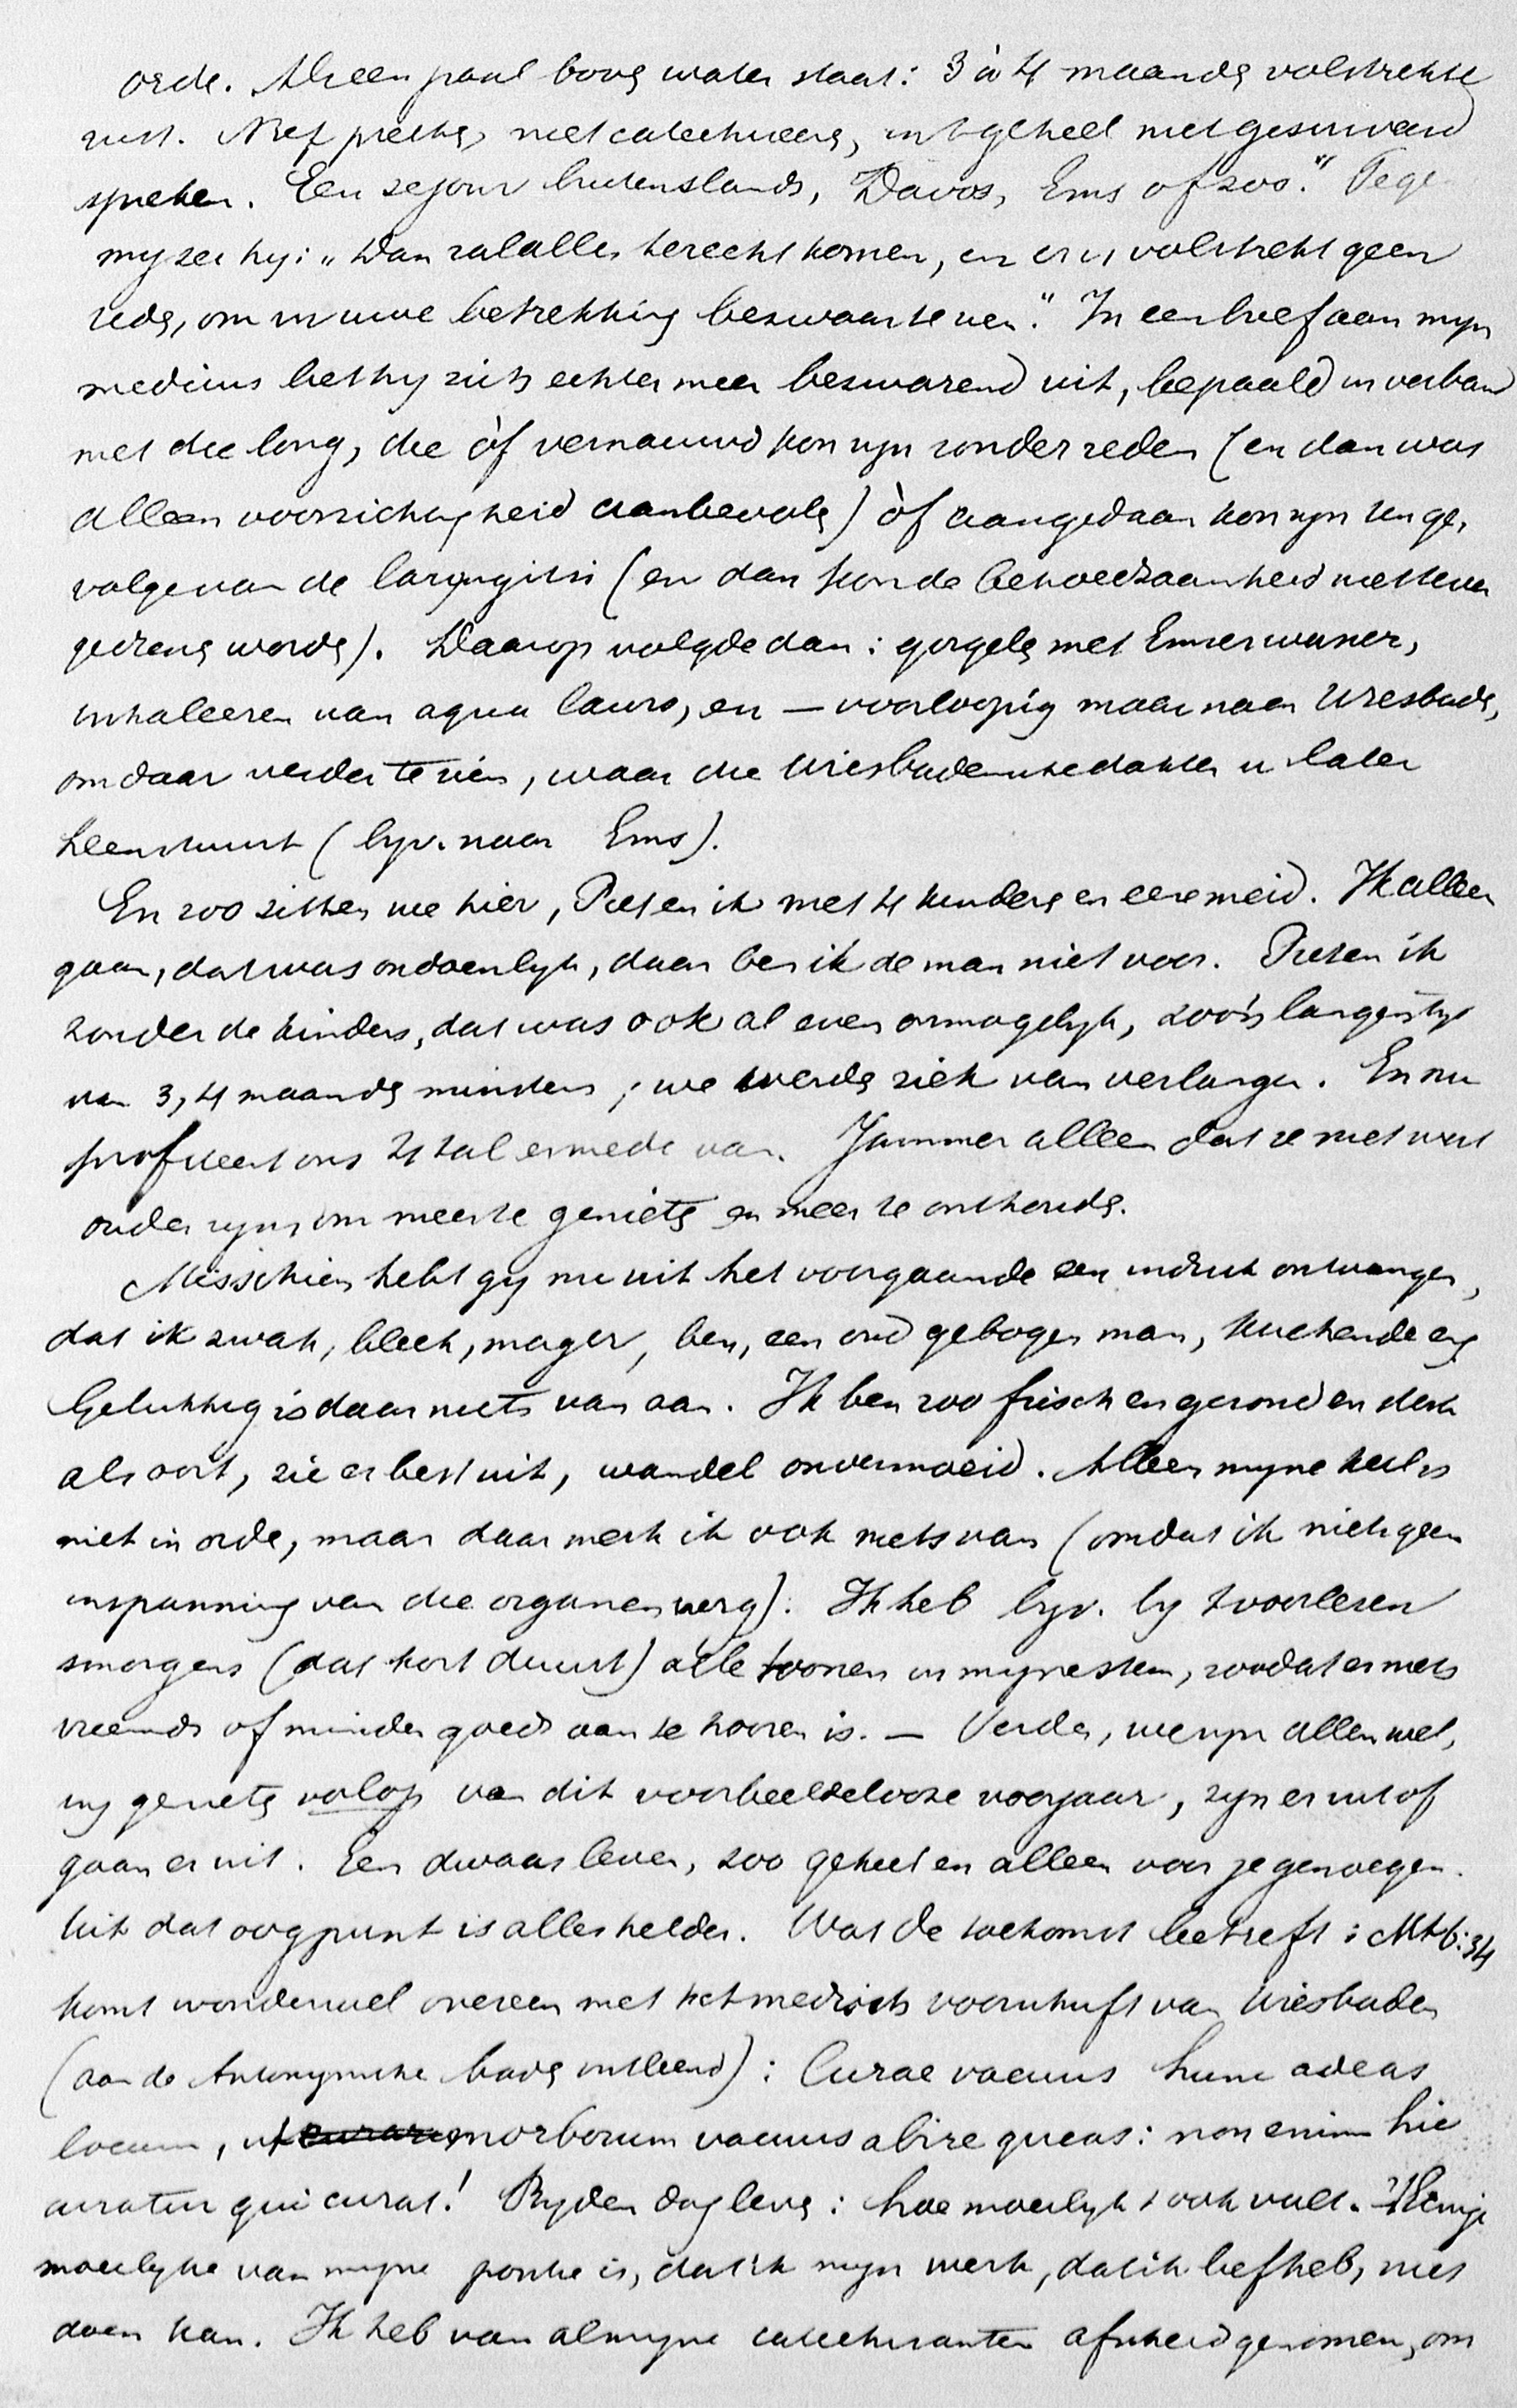 orde. Alleen paal boven water staat: 3 à 4 maanden volstrekte
rust. Niet preeken, niet catechiseeren, in 't geheel niet gesuiveerd
spreken. Een sejour buitenslands, Davos, Ems of zoo." Tege
my zei hy: „Dan zal alles terecht komen, en er is volstrekt geen
reden, om in uwe betrekking bezwaar te zien." In een brief aan myn
medicus liet hy zich echter meer bezwarend uit, bepaald in verband
met die long, die òf vernauwd kon zyn zonder reden (en dan was
alleen voorzichtigheid aanbevolen) òf aangedaan kon zyn ten ge,
volge van de laryngitis (en dan kon de behoedzaamheid niet te ver
gedreven worden). Daarop volgde dan: gorgelen met Emserwasser,
inhaleeren van aqua lauro, en — voorloopig maar naar Wiesbaden,
om daar verder te zien, waar die Wiesbadensche dokter u later
heenstuurt (byv. naar Ems).
En zoo zitten we hier, Piet en ik met 4 kinderen en eene meid. Ik alleen
gaan, dat was ondoenlyk, daar ben ik de man niet voor. Piet en ik
zonder de kinders, dat was ook al even onmogelyk, zoo'n langen tyd
van 3, 4 maanden minstens; we werden ziek van verlangen. En nu
profiteert ons 4 tal er mede van. Jammer alleen dat ze niet wat
ouder zyn, om meer te genieten en meer te onthouden.
Misschien hebt gy nu uit het voorgaande een indruk ontvangen,
dat ik zwak, bleek, mager, ben, een oud gebogen man, kuchende enz
Gelukkig is daar niets van aan. Ik ben zoo frisch en gezond en sterk
als ooit, zie er best uit, wandel onvermoeid. Alleen myne keel is
niet in orde, maar daar merk ik ook niets van (omdat ik niets geen
inspanning van die organen verg). Ik heb byv. by 't voorlezen
smorgens (dat kort duurt) alle toonen in myne stem, zoodat er niets
vreemds of minder goeds aan te hooren is. — Verder, we zyn allen wel,
wy genieten volop van dit voorbeeldelooze voorjaar, zyn er uit of
gaan er uit. Een dwaas leven, zoo geheel en alleen voor je genoegen.
Uit dat oogpunt is alles helder. Wat de toekomst betreft: Mt 6:34
komt wonderwel overeen met het medisch voorschrift van Wiesbaden
(aan de Antonynsche baden ontleend): Curae vacuus hunc adeas
locum, ut curare morborum vacuus abire queas: non enim hic
curatur qui curat! By den dag leven: hoe moeilyk 't ook valt. 't Eenige
moeilyke van myne positie is, dat ik myn werk, dat ik liefheb, niet
doen kan. Ik heb van al myne catechisanten afscheid genomen, om